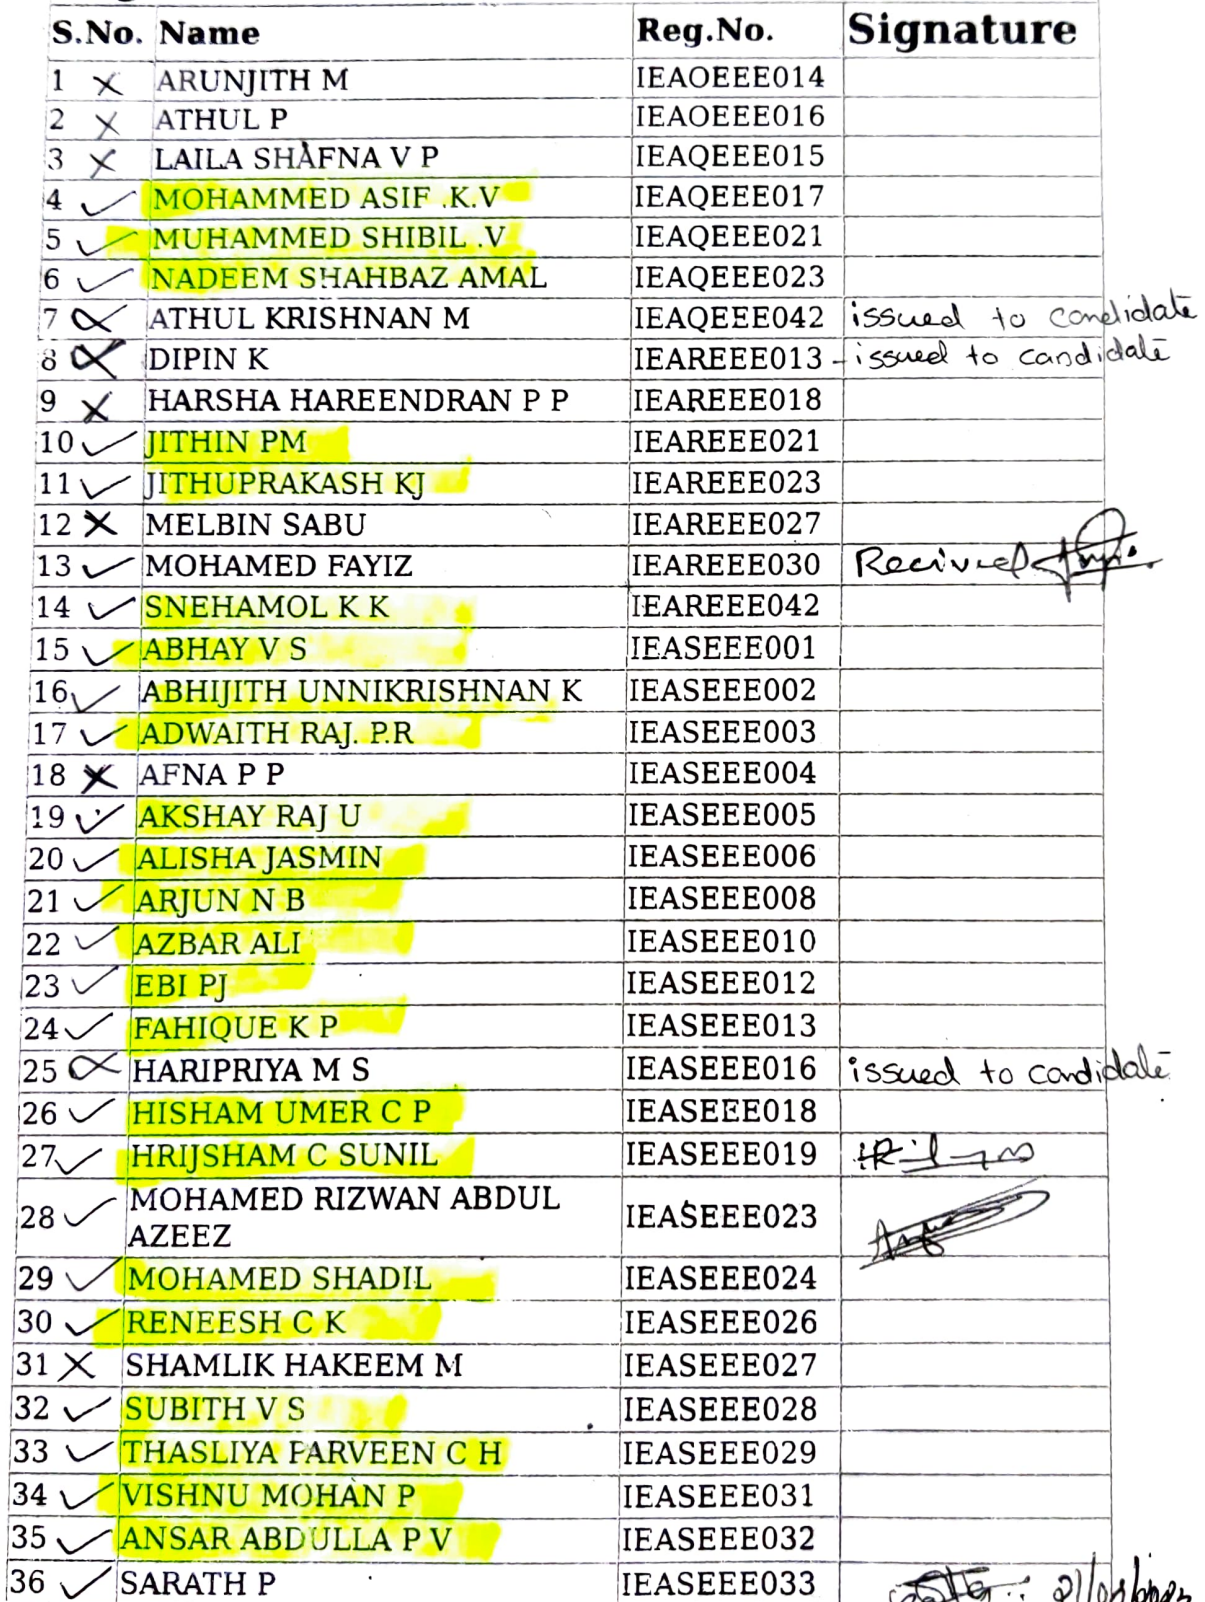 S.No. Name Reg.No. Signature
1 ARUNJITH M IEAOEEE014
2 ATHUL P IEAOEEE016
3 LAILA SHAFNA V P IEAQEEE015
4 MOHAMMED ASIF .K.V IEAQEEE017
5 MUHAMMED SHIBIL .V IEAQEEE021
6 NADEEM SHAHBAZ AMAL IEAQEEE023
7 ATHUL KRISHNAN M IEAQEEE042 issued to candidate
8 DIPIN K IEAREEE013 - issued to candidate
9 HARSHA HAREENDRAN P P IEAREEE018
10 JITHIN PM IEAREEE021
11 JITHUPRAKASH KJ IEAREEE023
12 MELBIN SABU IEAREEE027
13 MOHAMED FAYIZ IEAREEE030 Recived
14 SNEHAMOL K K IEAREEE042
15 ABHAY V S IEASEEE001
16 ABHIJITH UNNIKRISHNAN K IEASEEE002
17 ADWAITH RAJ. P.R IEASEEE003
18 AFNA P P IEASEEE004
19 AKSHAY RAJ U IEASEEE005
20 ALISHA JASMIN IEASEEE006
21 ARJUN N B IEASEEE008
22 AZBAR ALI IEASEEE010
23 EBI PJ IEASEEE012
24 FAHIQUE K P IEASEEE013
25 HARIPRIYA M S IEASEEE016 issued to candidate
26 HISHAM UMER C P IEASEEE018
27 HRIJSHAM C SUNIL IEASEEE019
28 MOHAMED RIZWAN ABDUL IEASEEE023
AZEEZ
29 MOHAMED SHADIL IEASEEE024
30 RENEESH C K IEASEEE026
31 SHAMLIK HAKEEM M IEASEEE027
32 SUBITH V S IEASEEE028
33 THASLIYA PARVEEN C H IEASEEE029
34 VISHNU MOHAN P IEASEEE031
35 ANSAR ABDULLA P V IEASEEE032
36 SARATH P IEASEEE033